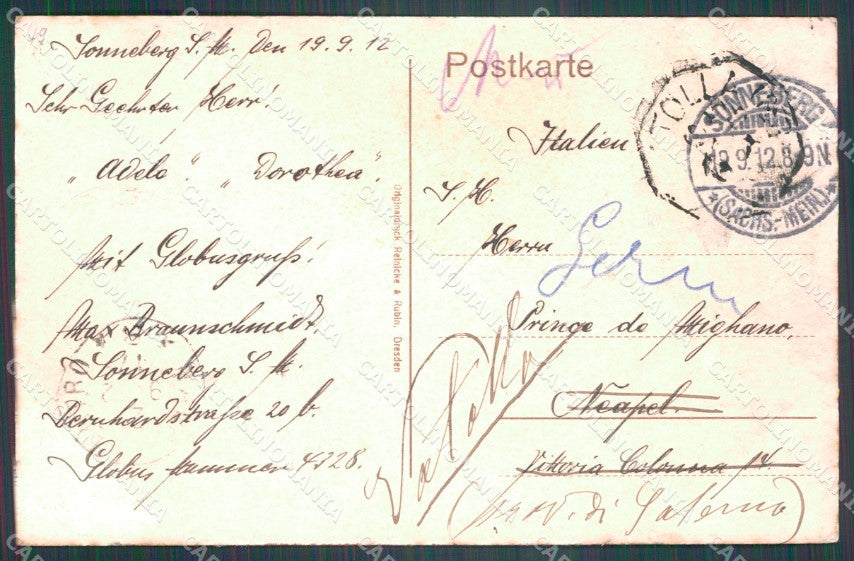 Sonneberg S. M. Den 19.9.12
Sehr Geehrter Herr!
„Adele". „Dorothea".
Mit Globusgruß!
Max Braunschmidt.
Sonneberg S. M.
Bernhardstraße 20 b.
Globus Nummer 4728.
Originaldruck Reinicke & Rubin, Dresden
Postkarte
Italien
S. H.
Herrn
Prince de Mighano.
Neapel.
Vittoria Colonna 14.
(prov. di Salerno)
SONNEBERG
9.12.8-9N
*(SACHS.-MEIN.)*
CARTOLINOMANIA